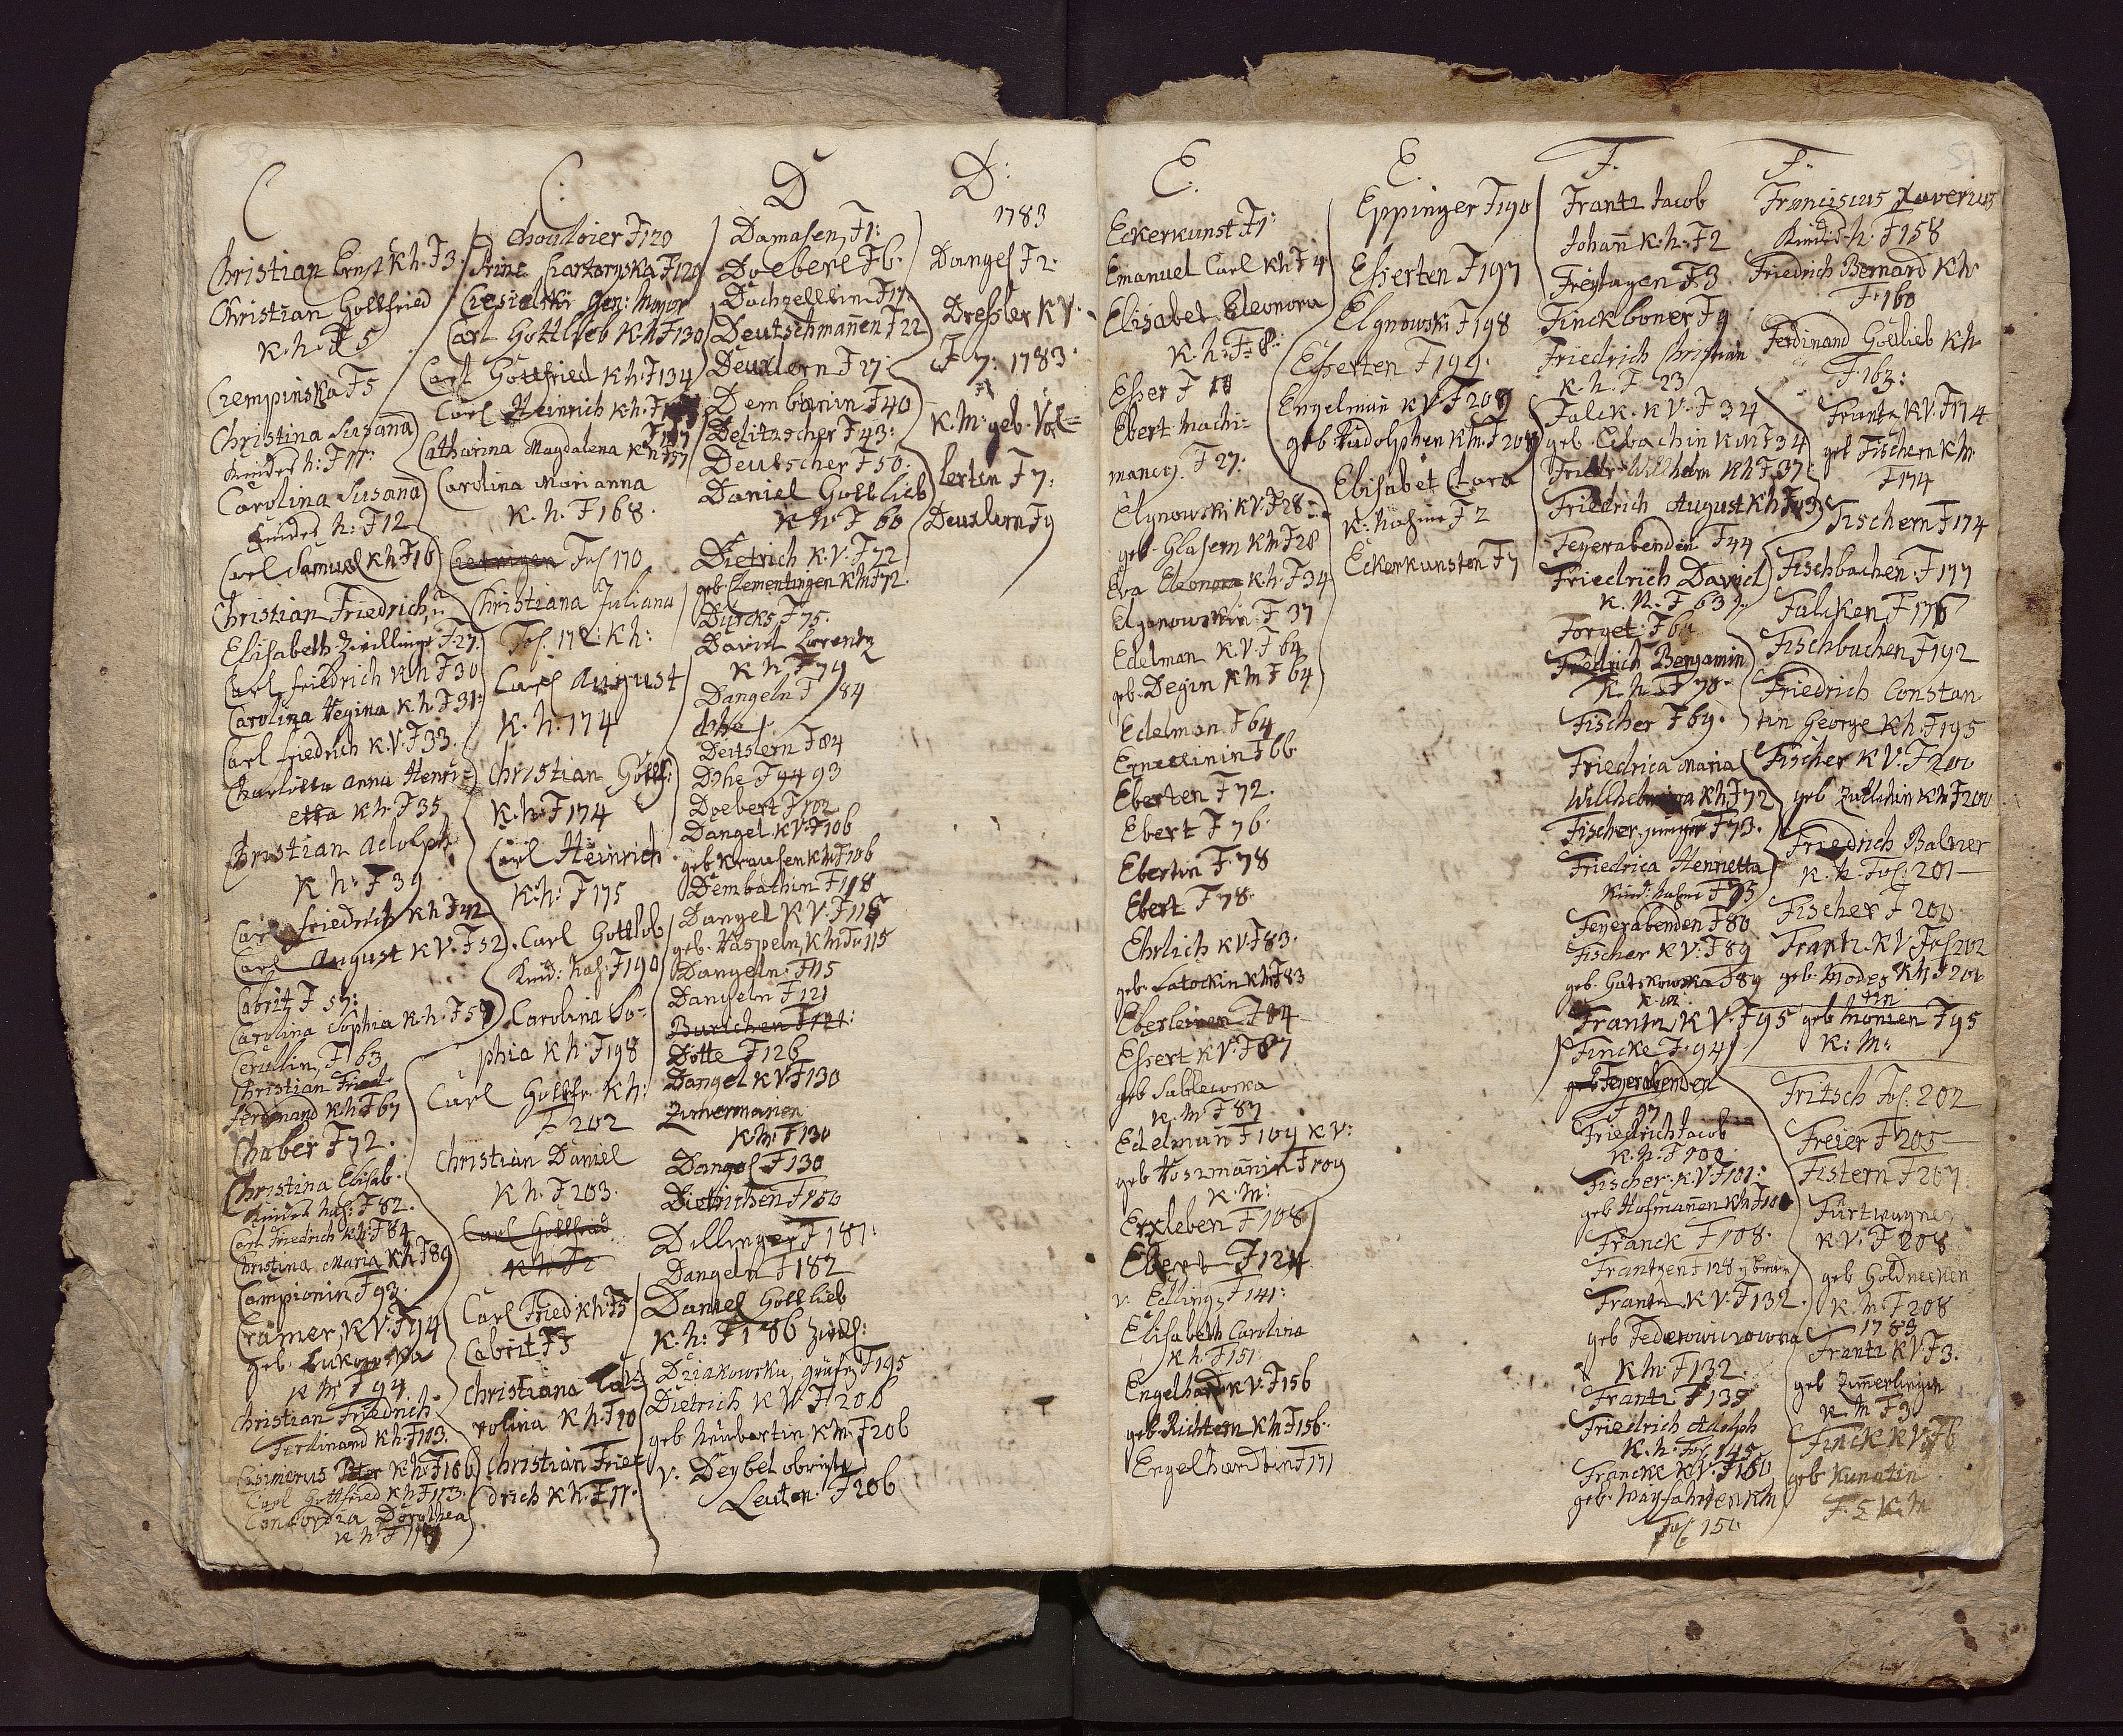 C
Christian Ernst K.h. F 3.
Christian Gottfried
K.h. F 5
Crempinska F5
Christina Susana
Kindes h: F 11:
Carolina Susana
Kindes h: F12
Carl Samuel k h F16
Christian Friedrich, u
Elisabeth Zwillinge F 27.
Carl friedrich K h F30
Carolina Regina K.h. F31:
Carl friedrich K.V. F33.
Charlotta Anna Henri=
etta K.h. F 35
Christian Adolph
K h: F 39
Carl friedrich Kh F42
Carl August K V. F52
Cabrit F 57:
Carolina Sophia K.h. F 59
Cerulin, F 63
Christian Fried.
Ferdinand K.h. F67
Chober F72.
Christina Elisab.
Kindes nah: F 82.
Carl Friedrich K.h. F84
Christina Maria Kh F89
Campionin F93.
Cramer, KV. F 94
geb. Lukowska
K M F 94.
Christian Friedrich
Ferdinand Kh. F103.
Casimerus Peter K.h. F106
Carl Gottfried K.h. F113.
Concordia Dorothea
K h: F 118
C:
Chouloier F120
Prinz Czartoryska F120
Cresielski Gen: Major
Carl Gottlieb K.h. F130
Carl Gottfried K h. F134
Carl Heinrich Kh.
F 147
Catharina Magdalena K h F157
Carolina Marianna
K. h. F 168.
Fol 170
Christiana Juliana
Fol. 172: Kh:
Carl August
K. h. 174
Christian Gottf:
K: h: F 174
Carl Heinrich
K: h: F 175
Carl Gottlob
Kind: nah: F190
Carolina So=
phia K h. F198
Carl Gottfr. Kh:
F 202
Christian Daniel
K h. F 203.
Carl Gottfried
K h. F 2
Carl Fried kh: F5
Cabrit F5
Christiana Ca=
rolina K h. F10
Christian Frie=
drich K h. F 11.
D
Damasen, F1:
Doebert F 6.
Dachzeltin F17.
Deutschmanen F22
Deuxlern F 27:
Dembanin F40
Delitzscher F 43:
Deutscher F 50.
Daniel Gottlieb
K h: F 60
Dietrich K.V. F72
geb Clementingen K M F72
Dyrcks F 75.
David Lorentz
K h. F 79
Dangeln F 84
Dohe
Deitslern F84
Dohe F 94 93
Doebert F 102
Dangel. KV. F106
geb Krausen K M F106
Dembathin F118
Dangel K V. F115
geb. Raspeln, K M Fo 115
Dangeln F115
Dangeln F 121
Burschen F 121:
Dotte F 126
Dangel KV F130
Zimermanen
K M. F 130
Dangel F 130
Dietrichen F150
Dillinger F 181:
Dangeln F 182
Daniel Gottlieb
K. h: F 186 Zwill:
Driakowska, gräfin F195
Dietrich K V F 206
geb Neubertin K M. F 206
v. Deybel obrigste
Leuten. F 206
D:
1783
Dangel F 2.
Dressler K V.
F 7: 1783.
K. M: geb. Vol=
lerten F 7:
Deuxlern F 9
E.
Eckerkunst F1:
Emanuel Carl Kh F 4
Elisabet Eleonora
K. h: F 8:
Esser F 10
Ebert Machi=
mancg. F 27:
Elgnowski K V. F28
geb. Glasern K M F28
Eva Eleonora K.h. F34
Elganowskin F 37
Edelman K.V. F 64
geb. Degin K M F 64
Edelman F64
Ernestinin F 66.
Eberten F 72.
Ebert F 76.
Ebertin F 78
Ebert F 78.
Ehrlich KV. F83.
geb. Latockin K M F83
Eberleinen F 84
Essert KV. F 87
geb Sablewska
K. M F 87
Edelman F 109 K V:
geb Roszmannin F109
K. M:
Erxleben F 108
Ebert F124
v. Edling, F 141:
Elisabeth Carolina
K h. F 151.
Engelhard K V. F156
geb. Richtern K M F156.
Engelhardtin F171
E.
Eppinger F190
Esserten F197
Elgnowski F198
Esserten F 199.
Engelman K V. F 209
geb. Rudolphen K M. F 209
Elisabet Clara
K: Nahme F 2
Eckerkunsten F 7
F.
Frantz Jacob
Johan K: h: F 2
Freytagen F 3
Finckboner F 9
Friedrich Christian
K. h. F 23
Falck. K V. F 34
geb. Eibachin K M F34
Friedr Willhelm Kh F37
Friedrich August K h F43
Feyerabenden F44
Friedrich David
K. N. F 63
Forget: F 69
Friedrich Benjamin
K. h. F 70.
Fischer F 69.
Friedrica Maria
Willhelmina K h. F72
Fischer, junger F73.
Friedrica Henrietta
Kind: nahme F75
Feyerabenden F 80
Fischer K V: F89
geb. Gutskowska F89
K. M.
Frantz K V. F95
Fincke F. 94
geb Feyerabenden
F 97
Friedrich Jacob
K. h. F 100
Fischer. K V. F101:
geb Hofmanen K M F101
Franck F 108.
Frantzen F 128
Frantz K V. F132.
geb Federowiczowna
K M: F 132.
Frantz F 135
Friedrich Adolph
K. h. Fol: 145
Francke K V. F150
geb. Wayfahrten K M
Fol 150
F.
Franciscus Xaverius
Kindes h. F158
Friedrich Bernard K h
F 160
Ferdinand Gottlieb K h
F 163:
Frantz KV. F174
geb Fischern K M
F174
Fischern F174
Fischbachen F 177
Falcken F 176
Fischbachen F 192
Friedrich Constan
tin George K h. F195
Fischer K V. F200
geb K M F200
Friedrich Balzer
K. h. Fol: 201
Fischer F 200.
Frantz. K V. Fol 202
geb. Modes K M F 201
tin
geb Monten F 95
K: M:
Fritsch Fol. 202
Freier F 205
Fistern F 207.
Fürtwagner
K V. F 208
geb Goldnecken
K. M. F 208
1783
Frantz K V F3.
geb Zimerlingin
K. M F 3.
Finck K V. F6
geb Kunatin
F. K M
51